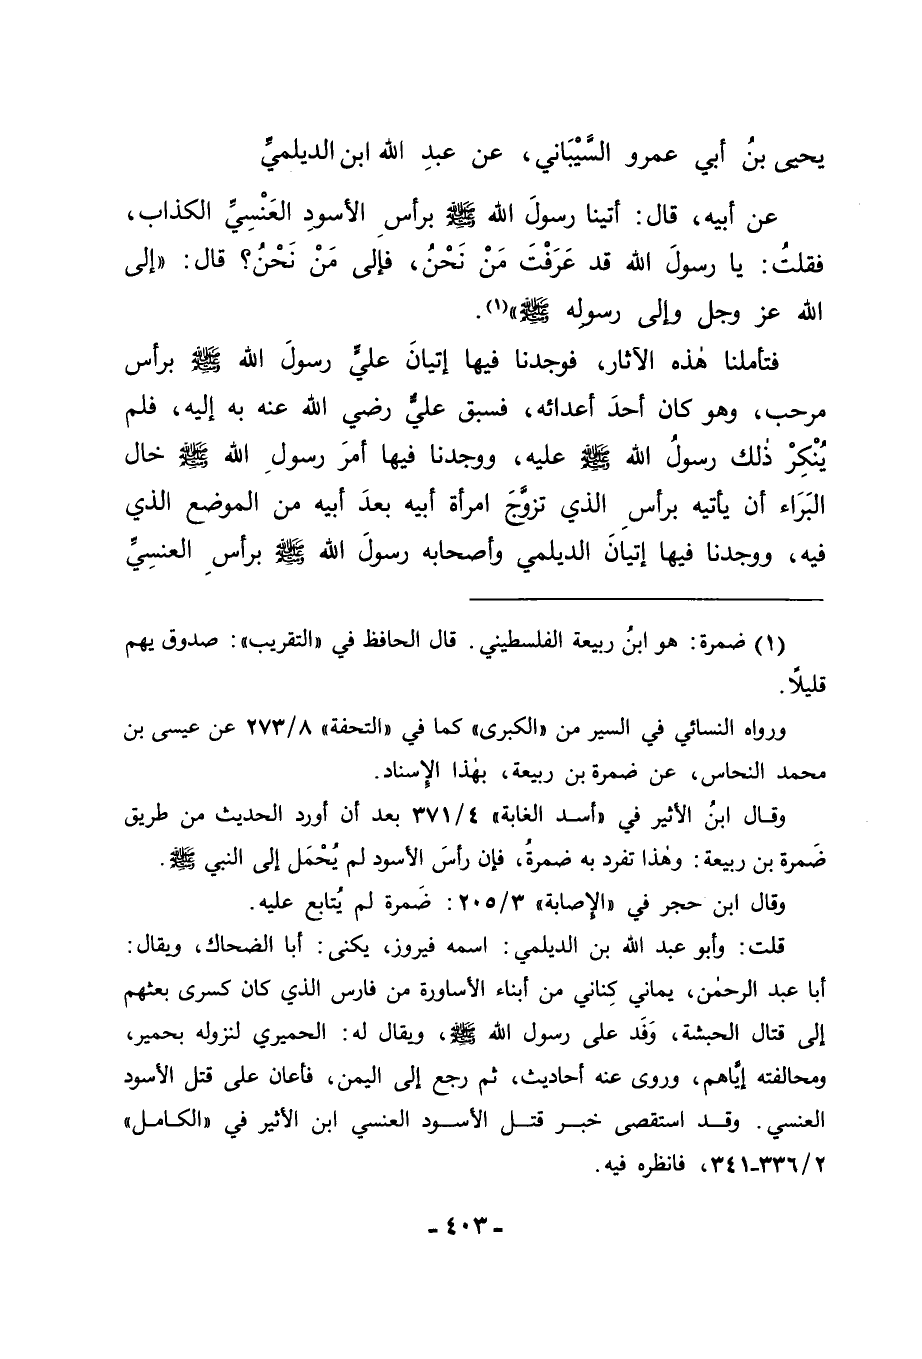 يحيى بنُ أبي عمرو السَّيْبَاني، عن عبدِ الله ابن الديلميِّ
عن أبيه، قال: أتينا رسولَ الله ﷺ برأسِ الأسودِ العَنْسِيِّ الكذاب،
فقلتُ: يا رسولَ الله قد عَرَفْتَ مَنْ نَحْنُ، فإلى مَنْ نَحْنُ؟ قال: «إلى
الله عز وجل وإلى رسولِه ﷺ»(١).
فتأملنا هٰذه الآثار، فوجدنا فيها إتيانَ عليٍّ رسولَ الله ﷺ برأس
مرحب، وهو كان أحدَ أعدائه، فسبق عليٌّ رضي الله عنه به إليه، فلم
يُنْكِرْ ذٰلك رسولُ الله ﷺ عليه، ووجدنا فيها أمرَ رسولِ الله ﷺ خال
البَرَاء أن يأتيه برأسِ الذي تزوَّجَ امرأة أبيه بعدَ أبيه من الموضع الذي
فيه، ووجدنا فيها إتيانَ الديلمي وأصحابه رسولَ الله ﷺ برأسِ العنسِيِّ
(١) ضمرة: هو ابنُ ربيعة الفلسطيني. قال الحافظ في «التقريب»: صدوق يهم
قليلًا.
ورواه النسائي في السير من «الكبرى» كما في «التحفة» ٢٧٣/٨ عن عيسى بن
محمد النحاس، عن ضمرة بن ربيعة، بهٰذا الإسناد.
وقال ابنُ الأثير في «أسد الغابة» ٣٧١/٤ بعد أن أورد الحديث من طريق
ضَمرة بن ربيعة: وهٰذا تفرد به ضمرةُ، فإن رأسَ الأسود لم يُحْمَل إلى النبي ﷺ.
وقال ابن حجر في «الإصابة» ٢٠٥/٣: ضَمرة لم يُتابع عليه.
قلت: وأبو عبد الله بن الديلمي: اسمه فيروز، يكنى: أبا الضحاك، ويقال:
أبا عبد الرحمٰن، يماني كِناني من أبناء الأساورة من فارس الذي كان كسرى بعثهم
إلى قتال الحبشة، وَفَد على رسول الله ﷺ، ويقال له: الحميري لنزوله بحمير،
ومحالفته إيَّاهم، وروى عنه أحاديث، ثم رجع إلى اليمن، فأعان على قتل الأسود
العنسي. وقد استقصى خبر قتل الأسود العنسي ابن الأثير في «الكامل»
٣٣٦/٢-٣٤١، فانظره فيه.
- ٤٠٣ -